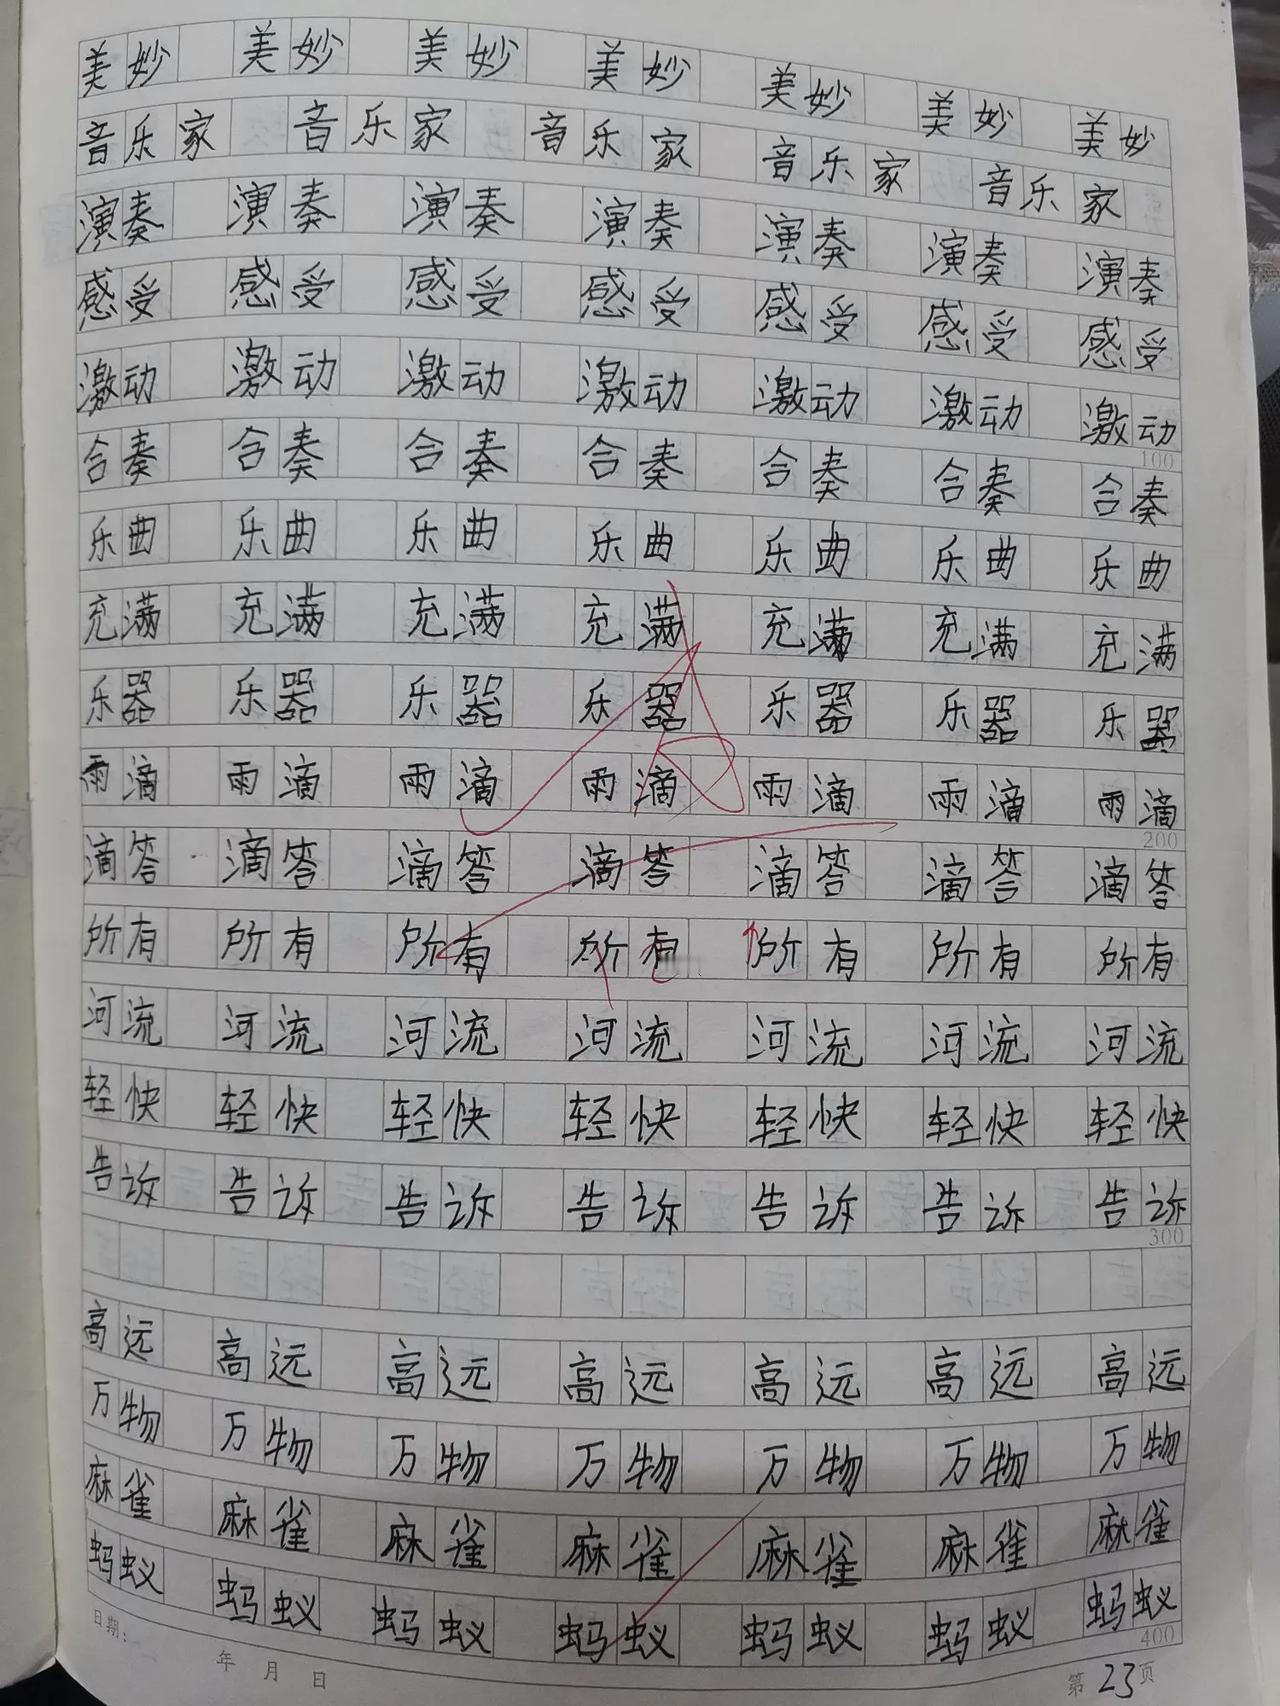 美妙 美妙 美妙 美妙 美妙 美妙 美妙
音乐家 音乐家 音乐家 音乐家 音乐家
演奏 演奏 演奏 演奏 演奏 演奏 演奏
感受 感受 感受 感受 感受 感受 感受
激动 激动 激动 激动 激动 激动 激动
100
合奏 合奏 合奏 合奏 合奏 合奏 合奏
乐曲 乐曲 乐曲 乐曲 乐曲 乐曲 乐曲
充满 充满 充满 充满 充满 充满 充满
乐器 乐器 乐器 乐器 乐器 乐器 乐器
雨滴 雨滴 雨滴 雨滴 雨滴 雨滴 雨滴
200
滴答 滴答 滴答 滴答 滴答 滴答 滴答
所有 所有 所有 所有 所有 所有 所有
河流 河流 河流 河流 河流 河流 河流
轻快 轻快 轻快 轻快 轻快 轻快 轻快
告诉 告诉 告诉 告诉 告诉 告诉 告诉
300
高远 高远 高远 高远 高远 高远 高远
万物 万物 万物 万物 万物 万物 万物
麻雀 麻雀 麻雀 麻雀 麻雀 麻雀 麻雀
蚂蚁 蚂蚁 蚂蚁 蚂蚁 蚂蚁 蚂蚁 蚂蚁
400
日期: 年 月 日 第23页